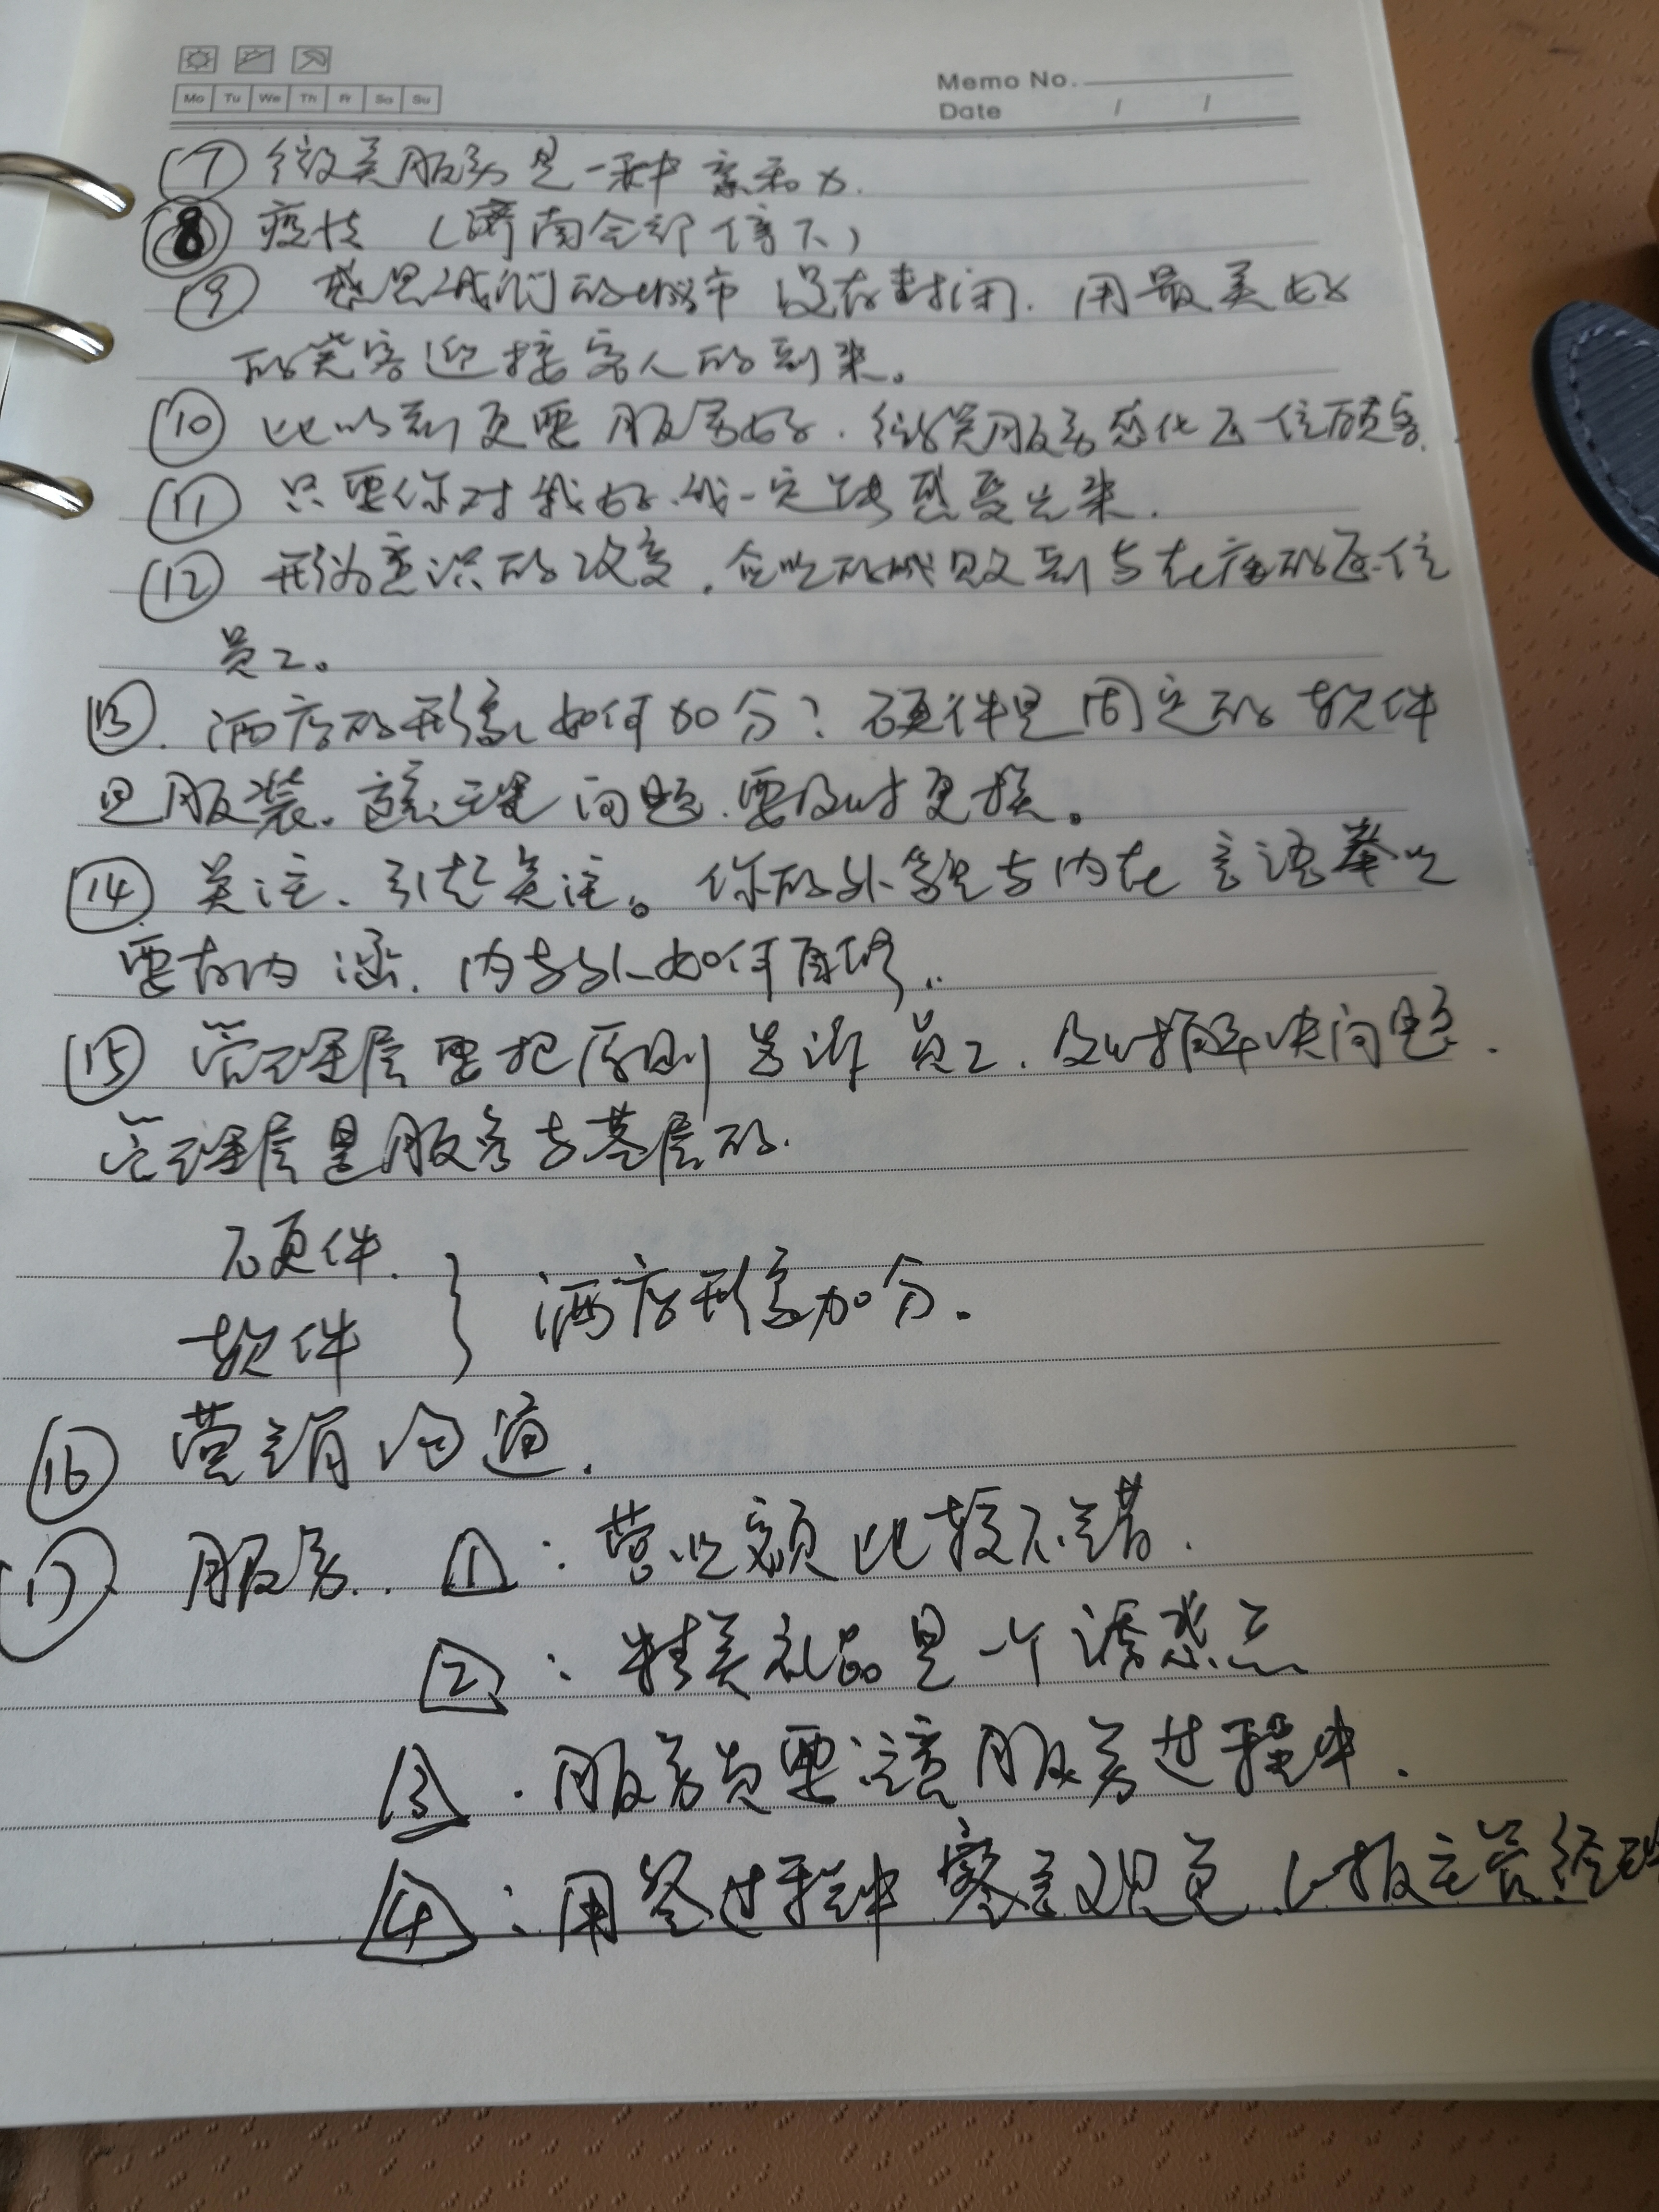 Memo No.
Mo Tu We Th Fr Sa Su
Date / /
⑦ 微美服务是一种亲和力.
⑧ 疫情（济南全部停下）
⑨ 感恩我们的城市没有封闭. 用最美好
的笑容迎接客人的到来。
⑩ 比以前更要服务好. 微笑服务感化每一位顾客.
⑪ 只要你对我好.我一定能感受出来.
⑫ 形为意识的改变. 企业的成败到与在座的每一位
员工。
⑬. 酒店的形象如何加分？硬件是固定的 软件
是服装。该处理问题.要及时更换。
⑭ 关注、引起关注。你的外貌与内在言语举止
要有内涵. 内与外如何兼修..
⑮ 管理层要把原则告诉员工. 及时解决问题.
管理层是服务与基层的.
硬件.
软件 } 酒店形象加分.
⑯ 营销沟通.
⑰ 服务.. 1：营业额比较不错.
2：精美礼品是一个诱惑点
3. 服务员要注意服务过程中.
4：用餐过程中察言观色.上报主管经理